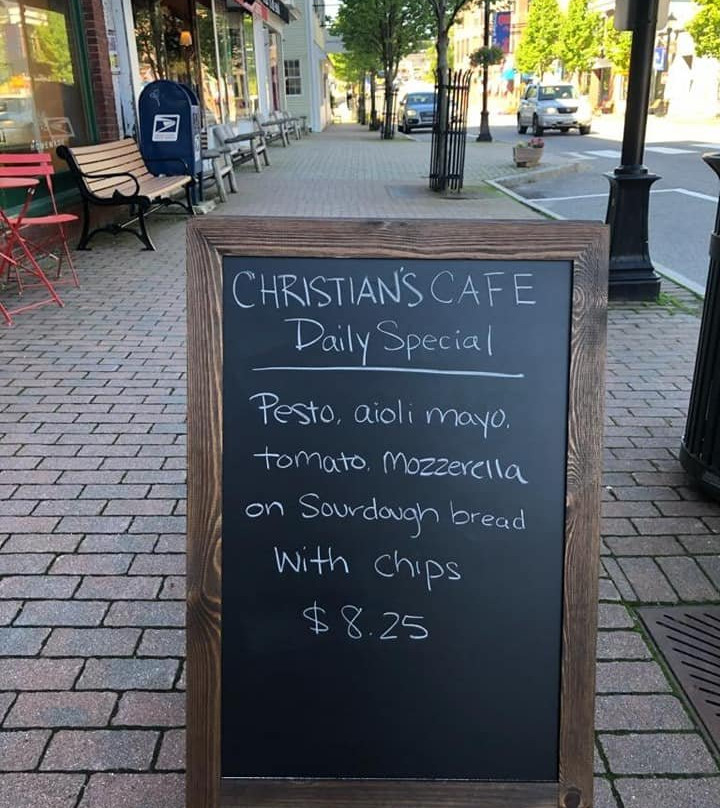 CHRISTIAN'S CAFE
Daily Special
Pesto, aioli mayo,
tomato, Mozzerella
on Sourdough bread
With chips
$8.25